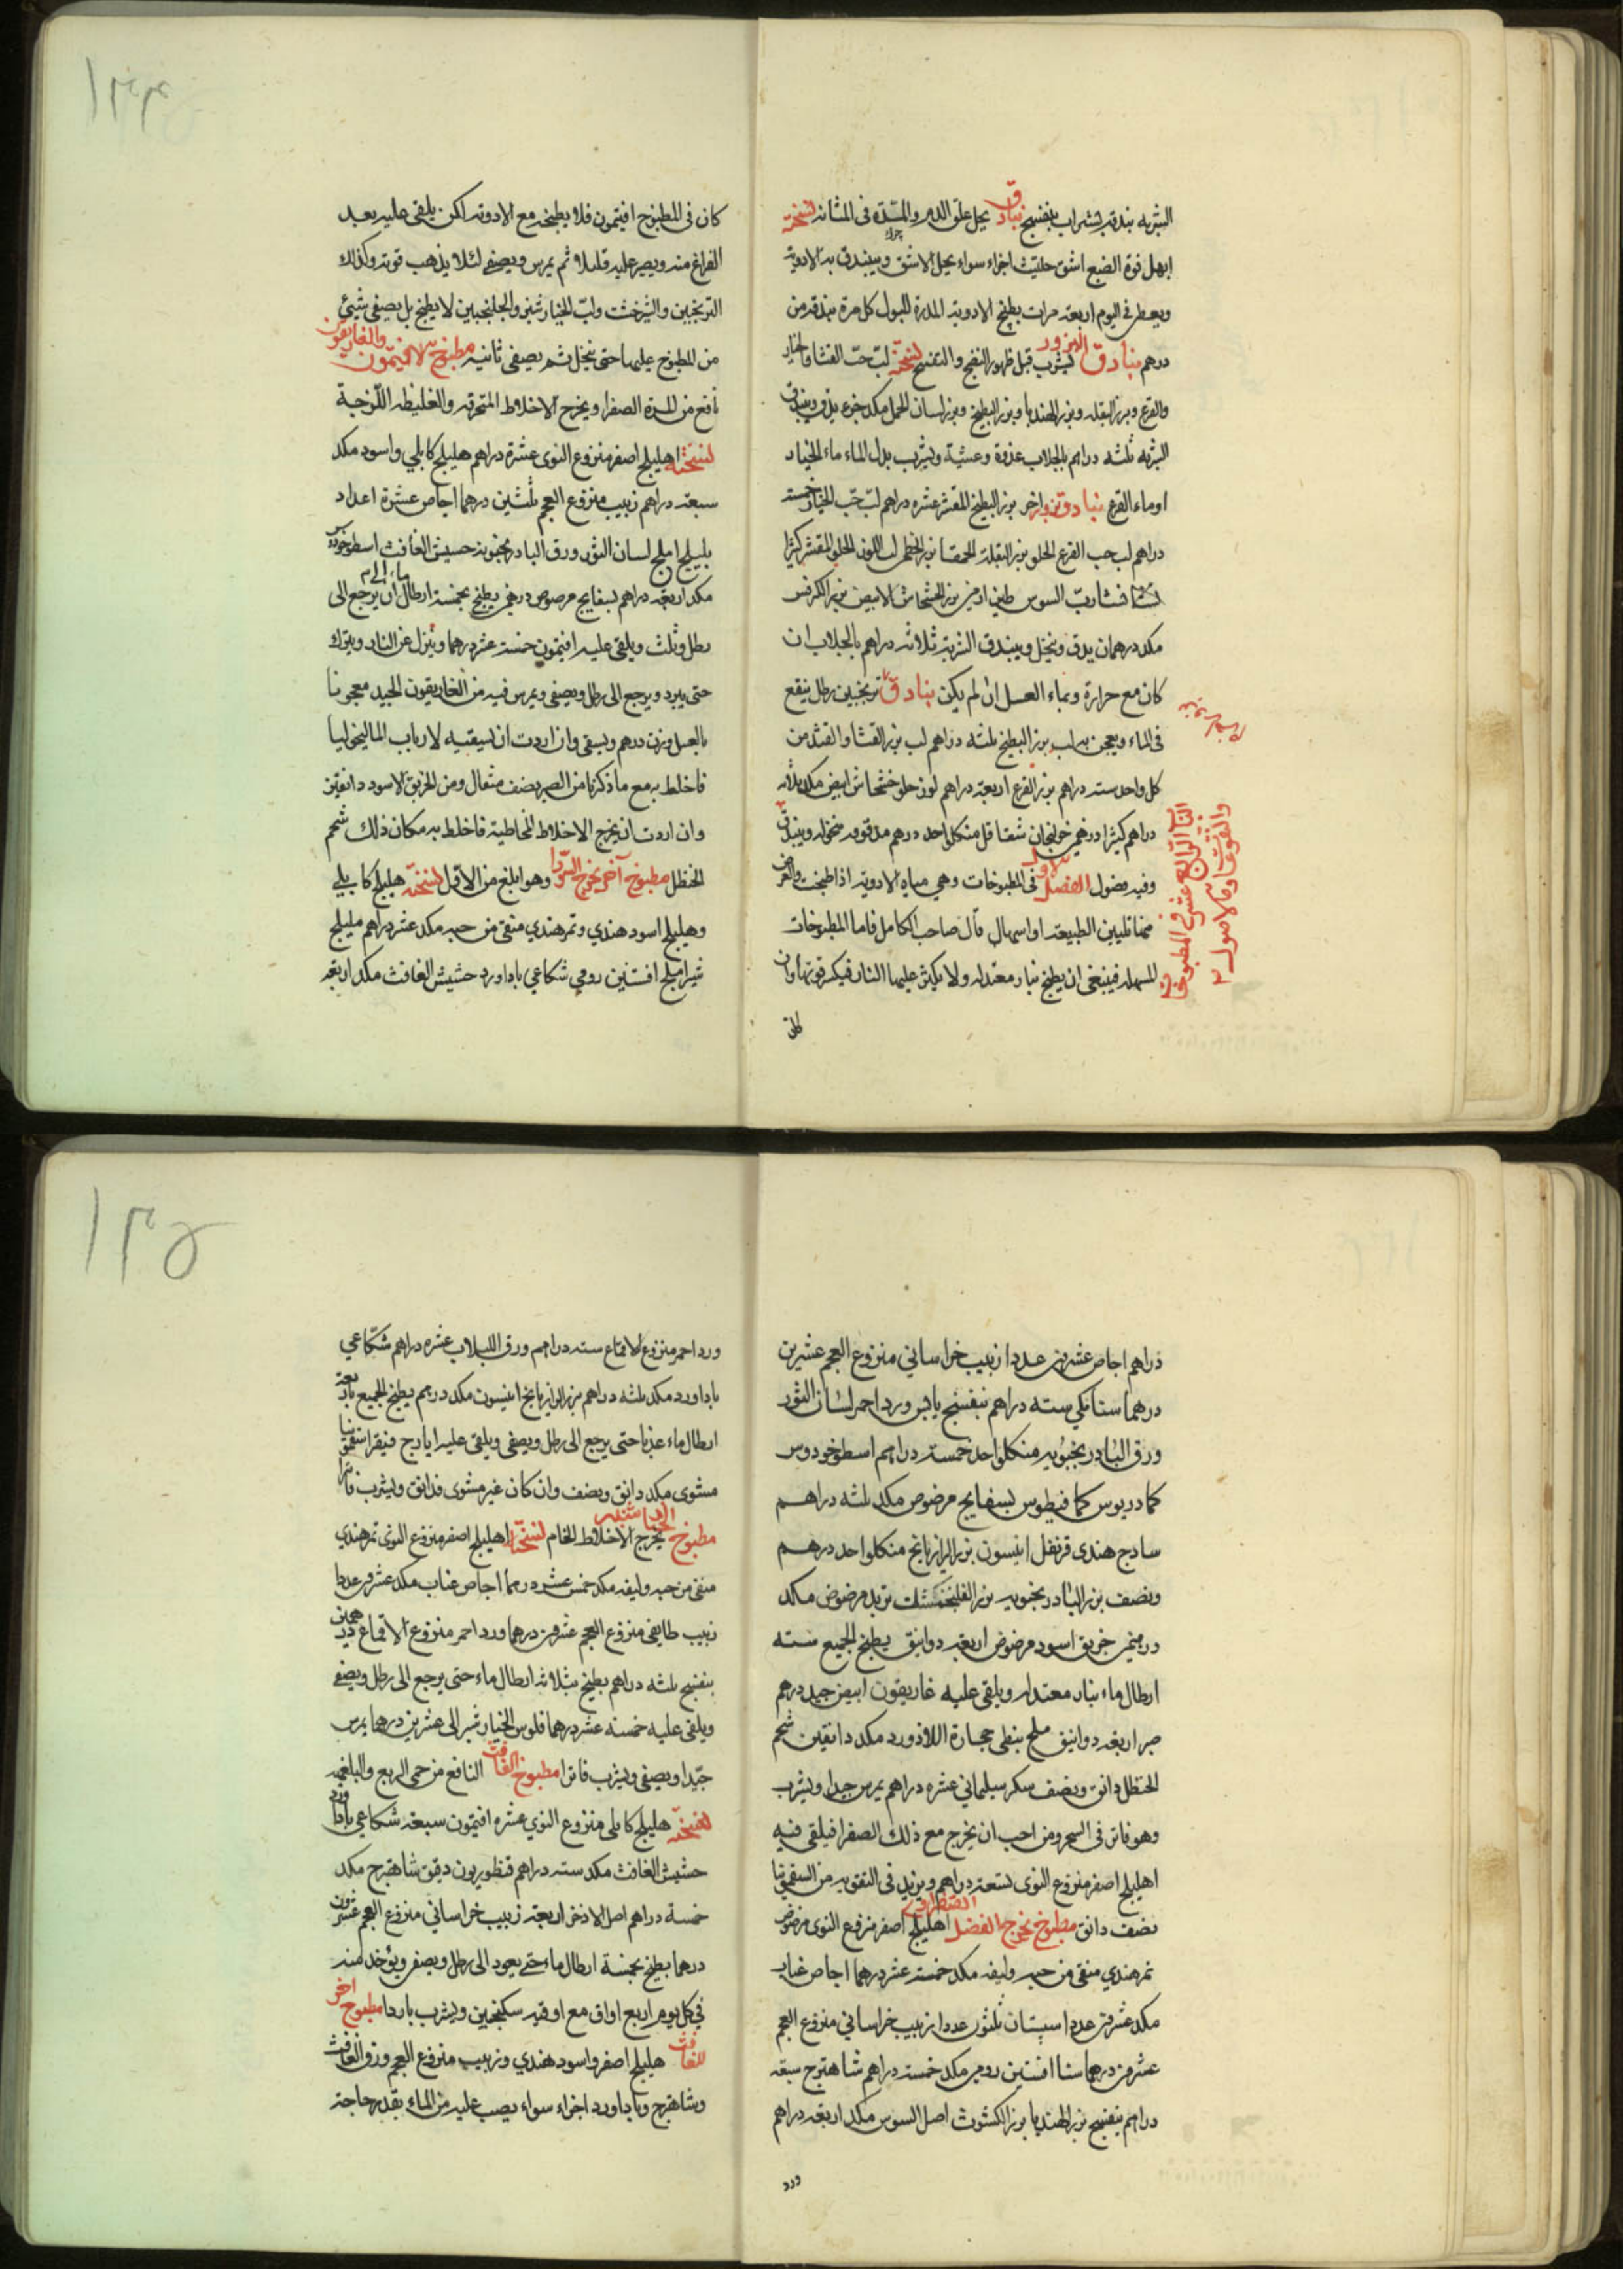 الشربه بندقه بشراب بنفسج بنادق يحل علق الدم والمدّة فى المثانه نسخته
ابهل فوة الصبغ اشق حلتيت اجزاء سواء يحل الاشق ويبندق به الادوية
ويعطى فى اليوم اربعة مرات بطبيخ الادوية المدرة للبول كل مرة بندقه من
درهم بنادق البزور يشرب قبل ظهور النضج والتفتيح نسخته لبّ حبّ القثا والخيار
والقرع وبزر البقله وبزر الهندبا وبزر البطيخ وبزر لسان الحمل مكد جزء يدق ويبندق
الشربه ثلثه دراهم بالجلاب غدوة وعشية ويشرب بدل الماء ماء الخيار
او ماء القرع بنادق بزور اخر بزر البطيخ المقشر عشره دراهم لبّ حبّ الخيار خمسة
دراهم لب حب القرع الحلو بزر البقلة الحمقا بزر الخطمى لب اللوز الحلو المقشر كثيرا
نشا ربّ السوس طين ارمنى بزر الخشخاش الابيض بزر الكرفس
مكد درهمان يدق وينخل ويبندق الشربة ثلاثه دراهم بالجلاب ان
كان مع حرارة وبماء العسل ان لم يكن بنادق ترنجبين رطل ينقع
فى الماء ويعجن به لب بزر البطيخ ثلثه دراهم لب بزر القثا والقثد من
كل واحد سته دراهم بزر القرع اربعة دراهم لوز حلو خشخاش ابيض مكد ثلثه
دراهم كثيرا درهمين خولنجان شقاقل من كل واحد درهم مدقوقه منخوله ويبندق
وفيه فصول الفصل الاول فى المطبوخات وهى مياه الادوية اذا طبخت والغرض
منها تليين الطبيعة او اسهال قال صاحب الكامل فاما المطبوخات
المسهله فينبغى ان يطبخ بنار معتدله ولا يكثر عليها النار فيكسر قوتها وان
كان
الباب الرابع عشر فى المطبوخات
والنقوعات وماء الاصول
١٣٤
كان فى المطبوخ افتيمون فلا يطبخه مع الادوية لكن يلقى عليه بعد
الفراغ منه ويصبر عليه قليلا ثم يمرس ويصفى لئلا يذهب قوته وكذلك
الترنجبين والشيرخشت ولبّ الخيار شنبر والجلنجبين لا يطبخ بل يصفى شيئ
من المطبوخ عليها حتى ينحل ثم يصفى ثانيه مطبوخ الافتيمون والغاريقون
نافع من المرة الصفرا ويخرج الاخلاط المحترقه والغليظه اللّزجة
نسخته اهليلج اصفر منزوع النوى عشرة دراهم هليلج كابلي واسود مكد
سبعة دراهم زبيب منزوع العجم ثلثين درهما اجاص عشرة اعداد
بليلج املج لسان الثور ورق البادرنجبويه حشيش الغافث اسطوخودوس
مكد اربعه دراهم بسفايج مرضوض درهمين يطبخ بخمسة ارطال ماء الى ان يرجع الى
رطل وثلث ويلقى عليه افتيمون خمسة عشر درهما وينزل عن النار ويترك
حتى يبرد ويرجع الى رطل ويصفى ويمرس فيه من الغاريقون الجيد معجونا
بالعسل وزن درهم ويسقى وان اردت ان تسقيه لارباب الماليخوليا
فاخلط به مع ما ذكرنا من الصبر نصف مثقال ومن الخربق الاسود دانقين
وان اردت ان يخرج الاخلاط المخاطية فاخلط به مكان ذلك شحم
الحنظل مطبوخ آخر يخرج السودا وهو ابلغ من الاوّل نسخته هليلج كابلي
وهليلج اسود هندي وتمر هندي منقى من حبه مكد عشر دراهم بليلج
شيراملج افسنتين رومي شكاعي باداورد حشيش الغافث مكد اربعه
دراهم اجاص عشرين عددا زبيب خراساني منزوع العجم عشرين
درهما سنا مكي سته دراهم بنفسج يابس ورد احمر لسان الثور
ورق البادرنجبويه من كل واحد خمسة دراهم اسطوخودوس
كمادريوس كمافيطوس بسفايج مرضوض مكد ثلثه دراهم
سادج هندى قرنفل انيسون بزر الرازيانج من كل واحد درهم
ونصف بزر البادرنجبويه بزر الفلنجمشك تربد مرضوض مكد
درهمين خربق اسود مرضوض اربعة دوانيق يطبخ الجميع بسته
ارطال ماء بنار معتدله ويلقى عليه غاريقون ابيض جيد درهم
صبر اربعه دوانيق ملح نفطى حجارة اللاذورد مكد دانقين شحم
الحنظل دانق ونصف سكر سليماني عشره دراهم يمرس جيدا ويشرب
وهو فاتر فى السحر ومن احب ان يخرج مع ذلك الصفرا فيلقى فيه
اهليلج اصفر منزوع النوى تسعة دراهم ويزيد فى التقويه من السقمونيا
نصف دانق مطبوخ يخرج الفضل الصفراوى اهليلج اصفر منزوع النوى مرضوض
تمر هندي منقى من حبه وليفه مكد خمسة عشر درهما اجاص عناب
مكد عشرين عددا سبستان ثلثون عددا زبيب خراساني منزوع العجم
عشرين درهما سنا افسنتين رومى مكد خمسة دراهم شاهترج سبعه
دراهم بنفسج بزر الهندبا بزر الكشوث اصل السوس مكد اربعه دراهم
ورد
١٣٥
ورد احمر منزوع الاقماع سته دراهم ورق اللبلاب عشره دراهم شكّاعي
باداورد مكد ثلثه دراهم بزر الرازيانج انيسون مكد درهم يطبخ الجميع باربعة
ارطال ماء عذبا حتى يرجع الى رطل ويصفى ويلقى عليه ايارج فيقرا سقمونيا
مشوى مكد دانق ونصف وان كان غير مشوى فدانق ويشرب فاترا
مطبوخ الخيارشنبر يخرج الاخلاط الخام نسخته اهليلج اصفر منزوع النوى تمر هندي
منقى من حبه وليفه مكد خمس عشر درهما اجاص عناب مكد عشرين عددا
زبيب طايفى منزوع العجم عشرين درهما ورد احمر منزوع الاقماع درهمين
بنفسج ثلثه دراهم يطبخ بثلاثه ارطال ماء حتى يرجع الى رطل ويصفى
ويلقى عليه خمسة عشر درهما فلوس الخيار شنبر الى عشرين درهما يمرس
جيّدا ويصفى ويشرب فاترا مطبوخ الغافث النافع من حمى الربع والبلغميه
نسخته هليلج كابلى منزوع النوي عشره افتيمون سبعة شكاعي باداورد
حشيش الغافث مكد سته دراهم قنطوريون دقيق شاهترج مكد
خمسة دراهم اصل الاذخر اربعة زبيب خراساني منزوع العجم عشرون
درهما يطبخ بخمسة ارطال ماء حتى يعود الى رطل ويصفى ويؤخذ منه
في كل يوم اربع اواق مع اوقيه سكنجبين ويشرب باردا مطبوخ اخر
للغافث هليلج اصفر واسود هندي وزبيب منزوع العجم وورق الغافث
وشاهترج وباداورد اجزاء سواء يصب عليه من الماء بقدر حاجته